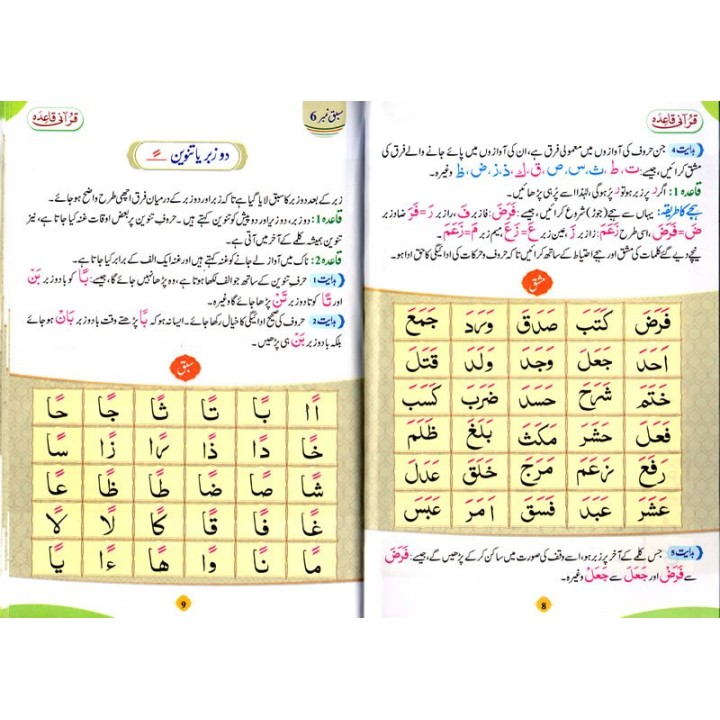 قرآنی قاعدہ
ہدایت ۴ جن حروف کی آوازوں میں معمولی فرق ہے، ان کی آوازوں میں پائے جانے والے فرق کی
مشق کرائیں، جیسے: ت، ط، ث، س، ص، ق، ک، ذ، ز، ض، ظ وغیرہ۔
قاعدہ 1: اگر ر پر زبر ہو تو ر پر ہوگی، لہٰذا اسے پر ہی پڑھائیں۔
ہجے کا طریقہ: یہاں سے ہجے (جوڑ) شروع کرائیں، جیسے: فَرَضَ: فا زبر فَ، را زبر رَ=فَرَ ضاد زبر
ضَ=فَرَضَ، اسی طرح زَعَمَ: زا زبر زَ، عین زبر عَ=زَعَ میم زبر مَ=زَعَمَ۔
نیچے دیے گئے کلمات کی مشق اور ہجے احتیاط کے ساتھ کرائیں تاکہ حروف و حرکات کی ادائیگی کا حق ادا ہو۔
مشق
فَرَضَ كَتَبَ صَدَقَ وَرَدَ جَمَعَ
اَحَدَ جَعَلَ وَجَدَ وَلَدَ قَتَلَ
خَتَمَ شَرَحَ حَسَدَ ضَرَبَ كَسَبَ
فَعَلَ حَشَرَ مَكَثَ بَلَغَ ظَلَمَ
رَفَعَ زَعَمَ مَرَجَ خَلَقَ عَدَلَ
عَشَرَ عَبَدَ فَسَقَ اَمَرَ عَبَسَ
ہدایت ۵ جس کلمے کے آخر میں زبر ہو، اسے وقف کی صورت میں ساکن کرکے پڑھیں گے، جیسے: فَرَضَ
سے فَرَضْ اور جَعَلَ سے جَعَلْ وغیرہ۔
8
قرآنی قاعدہ
سبق نمبر 6
دو زبر یا تنوین ـً
زبر کے بعد دو زبر کا سبق لایا گیا ہے تاکہ زبر اور دو زبر کے درمیان فرق اچھی طرح واضح ہو جائے۔
قاعدہ 1: دو زبر، دو زیر اور دو پیش کو تنوین کہتے ہیں۔ حروفِ تنوین پر بعض اوقات غنہ کیا جاتا ہے، نیز
تنوین ہمیشہ کلمے کے آخر میں آتی ہے۔
قاعدہ 2: ناک میں آواز لے جانے کو غنہ کہتے ہیں اور غنہ ایک الف کے برابر کیا جاتا ہے۔
ہدایت ۱ حرف تنوین کے ساتھ جو الف لکھا ہوتا ہے، وہ پڑھا نہیں جائے گا، جیسے: بًا کو با دو زبر بَنْ
اور تًا کو تا دو زبر تَنْ پڑھا جائے گا وغیرہ۔
ہدایت ۲ حروف کی صحیح ادائیگی کا خیال رکھا جائے۔ ایسا نہ ہو کہ بًا پڑھتے وقت با دو زبر بَانْ ہو جائے
بلکہ با دو زبر بَنْ ہی پڑھیں۔
سبق
اًا بًا تًا ثًا جًا حًا
خًا دًا ذًا رًا زًا سًا
شًا صًا ضًا طًا ظًا عًا
غًا فًا قًا كًا لًا لًا
مًا نًا وًا هًا ءًا يًا
9